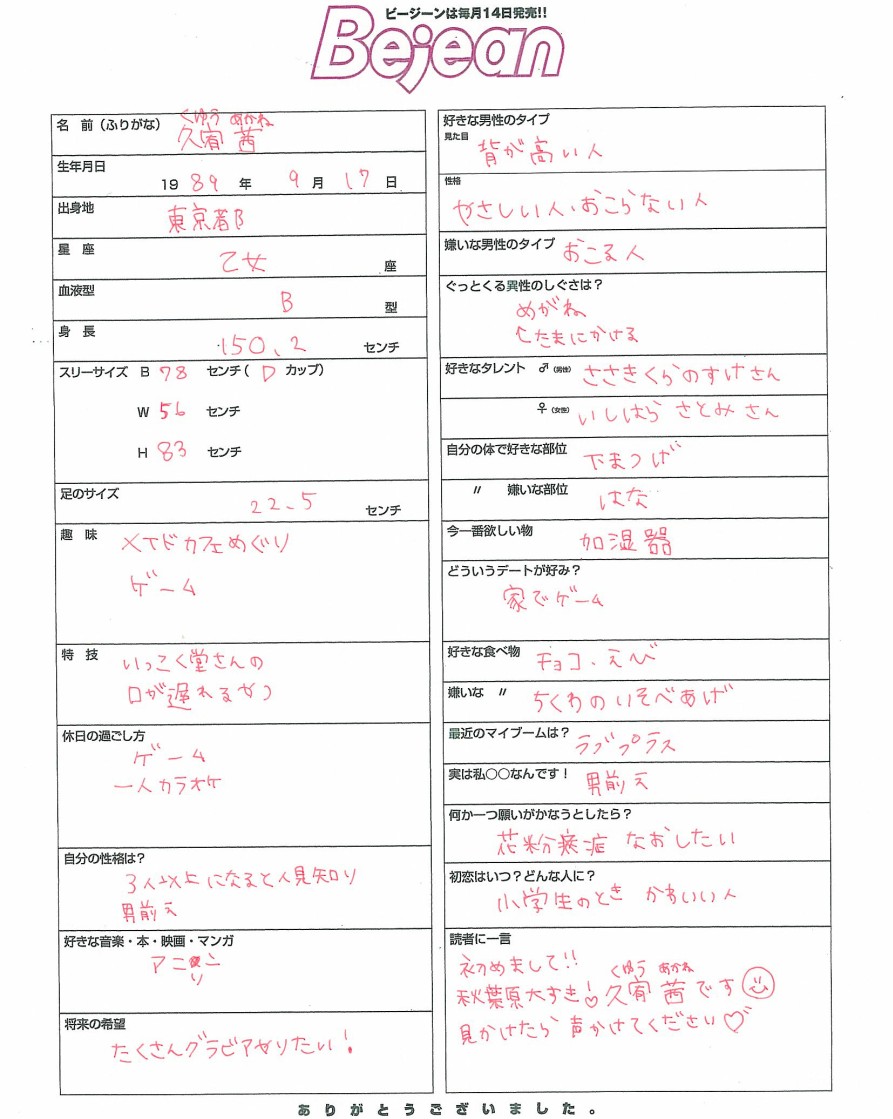 ビージーンは毎月14日発売!!
Bejean
名 前（ふりがな） くゆう あかね
久宥 茜
生年月日
1989年 9月 17日
出身地
東京都
星 座
乙女 座
血液型
B 型
身 長
150.2 センチ
スリーサイズ B 78 センチ（D カップ）
W 56 センチ
H 83 センチ
足のサイズ
22.5 センチ
趣 味 メイドカフェめぐり
ゲーム
特 技 いっこく堂さんの
口が遅れるやつ
休日の過ごし方
ゲーム
一人カラオケ
自分の性格は？
3人以上になると人見知り
男前
好きな音楽・本・映画・マンガ
アニソン
将来の希望
たくさんグラビアやりたい！
好きな男性のタイプ
見た目
背が高い人
性格
やさしい人、おこらない人
嫌いな男性のタイプ おこる人
ぐっとくる異性のしぐさは？
めがね
たまにかける
好きなタレント ♂（男性） ささきくらのすけさん
♀（女性） いしはら さとみ さん
自分の体で好きな部位 下まつげ
〃 嫌いな部位 はな
今一番欲しい物 加湿器
どういうデートが好み？
家でゲーム
好きな食べ物 チョコ、えび
嫌いな 〃 ちくわのいそべあげ
最近のマイブームは？ ラブプラス
実は私〇〇なんです！ 男前
何か一つ願いがかなうとしたら？
花粉症 なおしたい
初恋はいつ？どんな人に？
小学生のとき かわいい人
読者に一言
初めまして!!
くゆう あかね
秋葉原大すき！久宥 茜です
見かけたら 声かけてください♡
ありがとうございました。